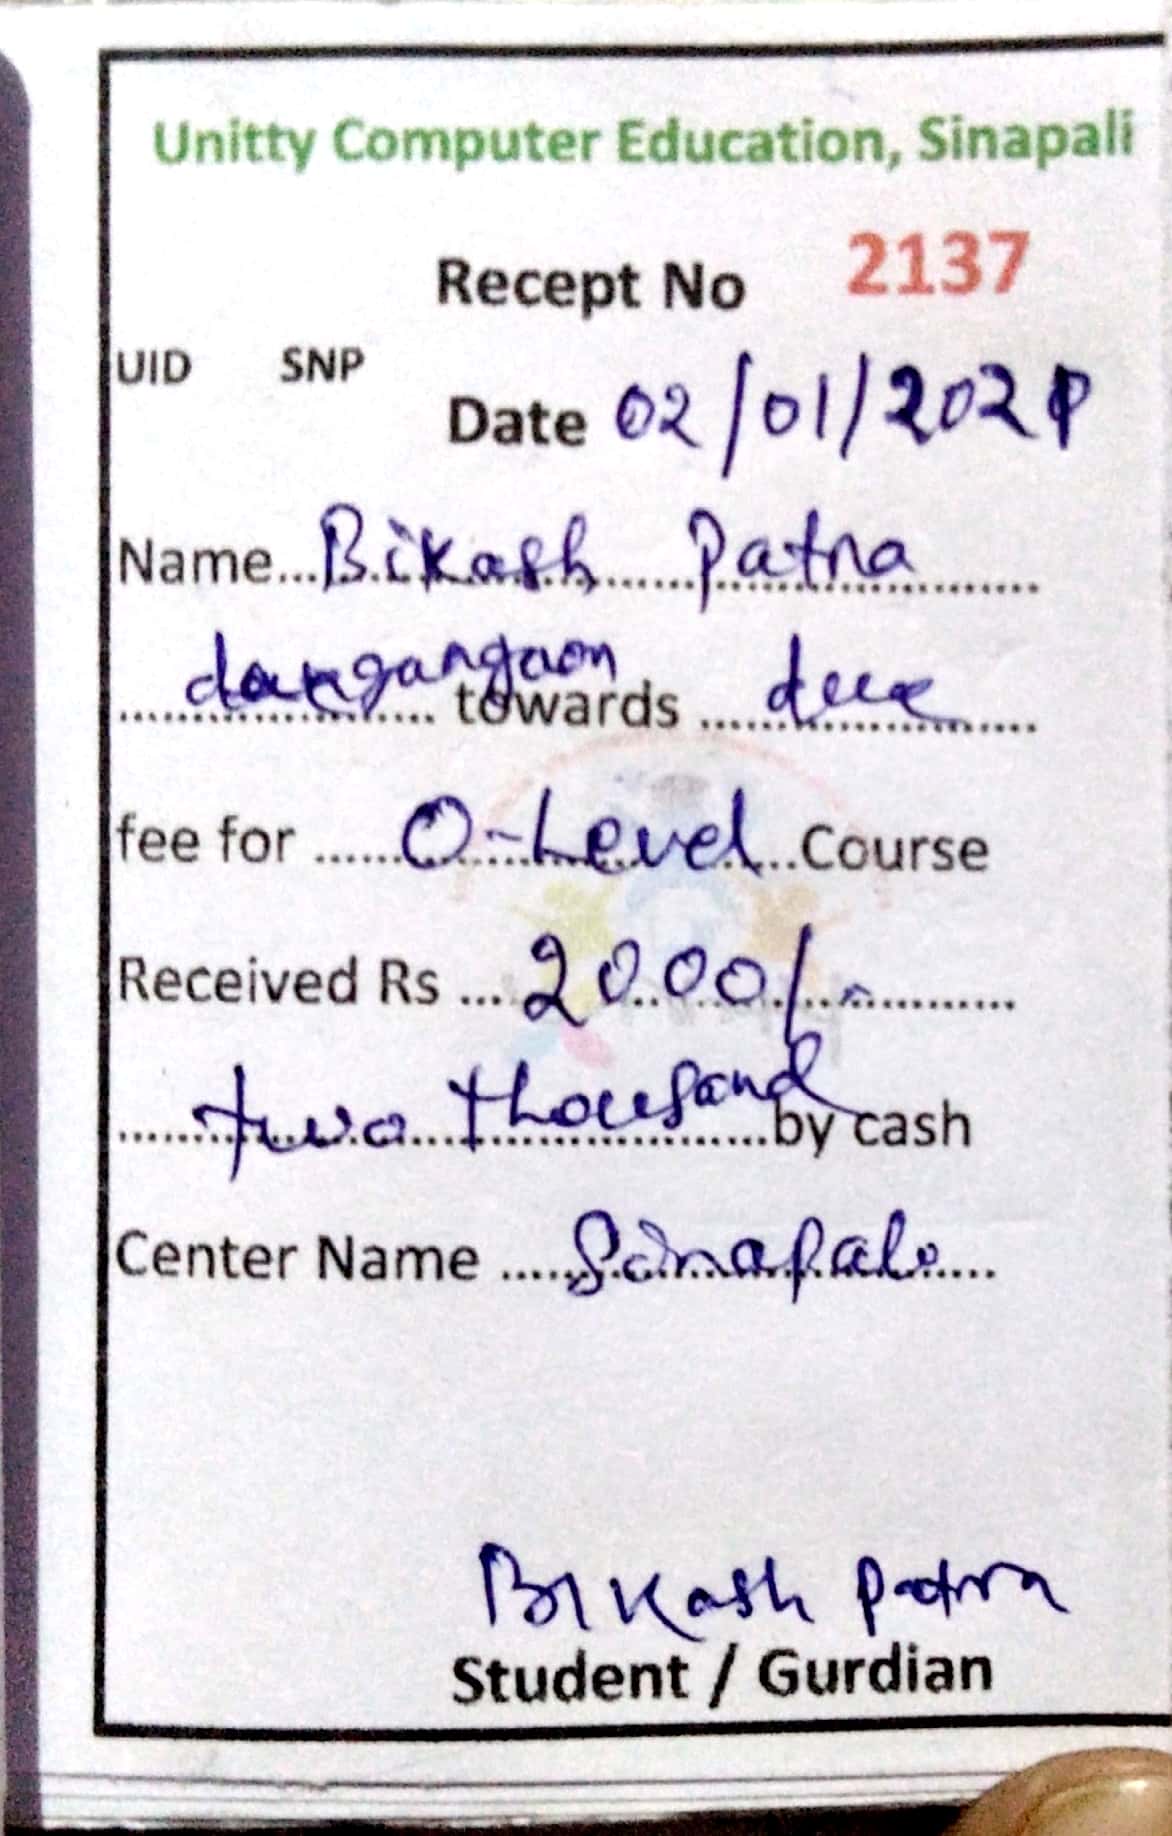 Unitty Computer Education, Sinapali
Recept No 2137
UID SNP
Date 02/01/202
Name...Bikash Patra
dangargaon towards due
fee for ......O-Level...Course
Received Rs ... 2000/-
two thousand by cash
Center Name .....Sinapali.....
Bikash Patra
Student / Gurdian